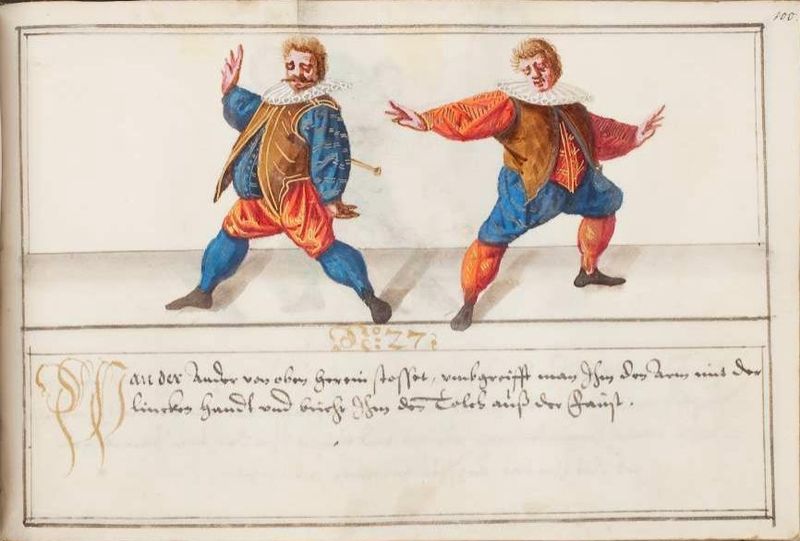 100.
No: 27.
Wan der Ander von oben herein stosset, umbgreifft man Ihm den Arm mit der
lincken handt und bricht Ihm den Tolch auß der Faust.